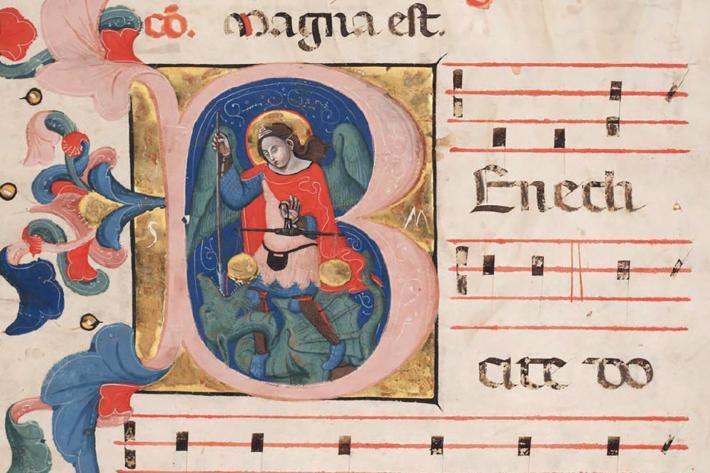 cō. magna est.
S M
Benedi
cite do